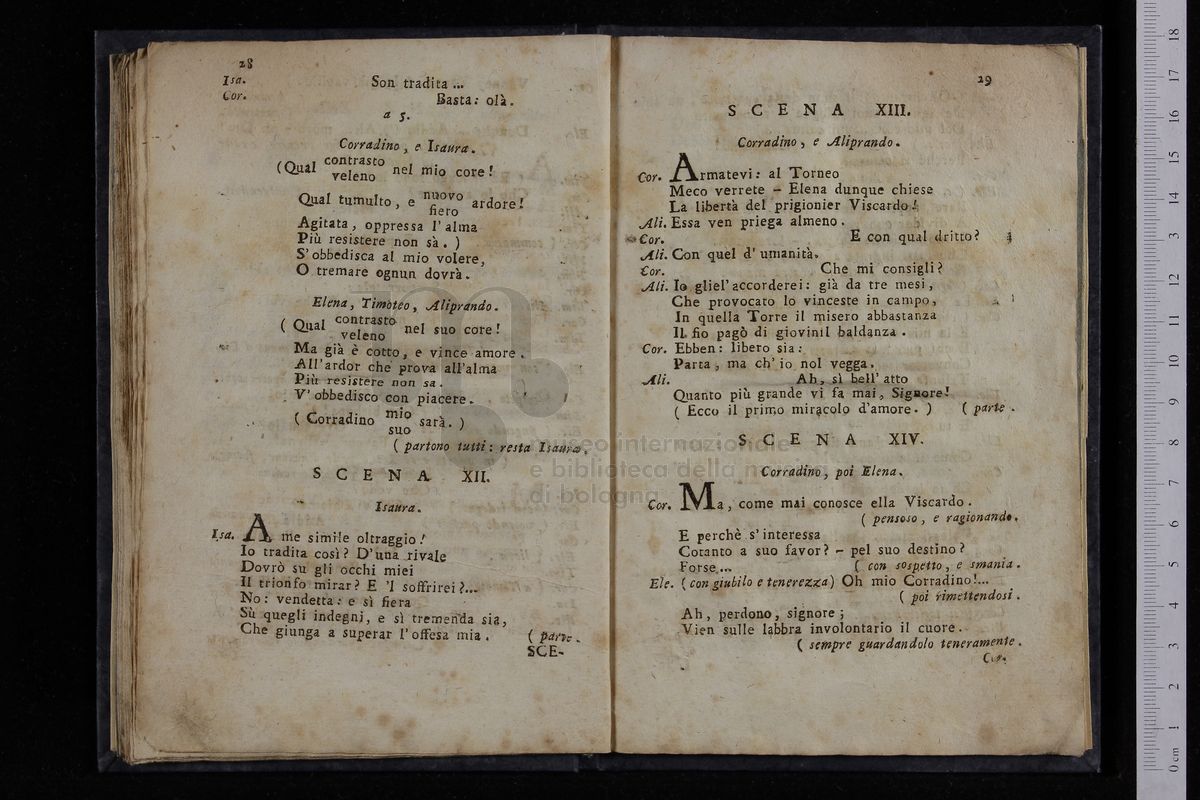 28
Isa. Son tradita ...
Cor. Basta: olà.
a 5.
Corradino, e Isaura.
(Qual contrasto nel mio core!
veleno
Qual tumulto, e nuovo ardore!
fiero
Agitata, oppressa l'alma
Più resistere non sà. )
S'obbedisca al mio volere,
O tremare ognun dovrà.
Elena, Timoteo, Aliprando.
( Qual contrasto nel suo core!
veleno
Ma già è cotto, e vince amore.
All'ardor che prova all'alma
Più resistere non sa.
V'obbedisco con piacere.
( Corradino mio sarà. )
suo
( partono tutti: resta Isaura.
SCENA XII.
Isaura.
Isa. A me simile oltraggio!
Io tradita così? D'una rivale
Dovrò su gli occhi miei
Il trionfo mirar? E 'l soffrirei?...
No: vendetta: e sì fiera
Sù quegli indegni, e sì tremenda sia,
Che giunga a superar l'offesa mia. ( parte.
SCE-
29
SCENA XIII.
Corradino, e Aliprando.
Cor. Armatevi: al Torneo
Meco verrete - Elena dunque chiese
La libertà del prigionier Viscardo!
Ali. Essa ven priega almeno.
Cor. E con qual dritto?
Ali. Con quel d'umanità.
Cor. Che mi consigli?
Ali. Io gliel'accorderei: già da tre mesi,
Che provocato lo vinceste in campo,
In quella Torre il misero abbastanza
Il fio pagò di giovinil baldanza.
Cor. Ebben: libero sia:
Parta, ma ch'io nol vegga.
Ali. Ah, sì bell'atto
Quanto più grande vi fa mai, Signore!
( Ecco il primo miracolo d'amore. ) ( parte.
SCENA XIV.
Corradino, poi Elena.
Cor. Ma, come mai conosce ella Viscardo.
( pensoso, e ragionando.
E perchè s'interessa
Cotanto a suo favor? - pel suo destino?
Forse... ( con sospetto, e smania.
Ele. (con giubilo e tenerezza) Oh mio Corradino!...
( poi rimettendosi.
Ah, perdono, signore;
Vien sulle labbra involontario il cuore.
( sempre guardandolo teneramente.
Cor.
museo internazionale
e biblioteca della m
di bologna
0 cm 1 2 3 4 5 6 7 8 9 10 11 12 13 14 15 16 17 18